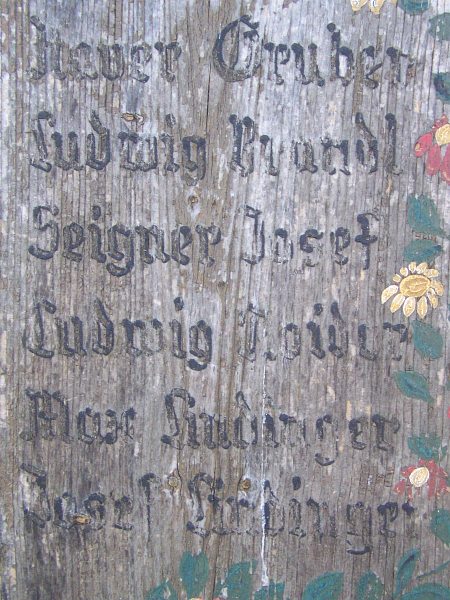 Xaver Gruber
Ludwig Brandl
Seigner Josef
Ludwig Loider
Max Lindinger
Josef Lindinger